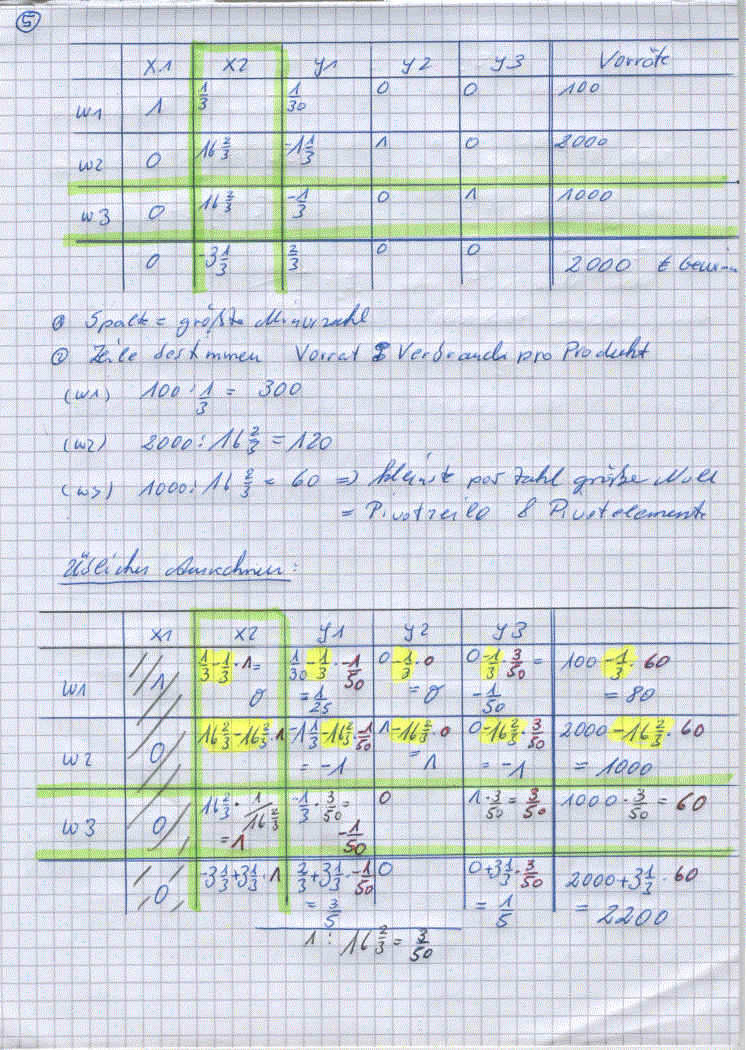 5
x1 x2 y1 y2 y3 Vorräte
w1 1 1/3 1/30 0 0 100
w2 0 16 2/3 -1 1/3 1 0 2000
w3 0 16 2/3 -1/3 0 1 1000
0 -3 1/3 2/3 0 0 2000 € Gewinn
① Spalte = größte Minuszahl
② Zeile bestimmen Vorrat : Verbrauch pro Produkt
(w1) 100 : 1/3 = 300
(w2) 2000 : 16 2/3 = 120
(w3) 1000 : 16 2/3 = 60 => kleinste pos Zahl größe Null
= Pivotzeile & Pivotelement
Übliches Ausrechnen:
x1 x2 y1 y2 y3
1/3 - 1/3 · 1 = 1/30 - 1/3 · -1/50 0 - 1/3 · 0 0 - 1/3 · 3/50 = 100 - 1/3 · 60
w1 1 0 = 1/25 = 0 -1/50 = 80
16 2/3 - 16 2/3 · 1 -1 1/3 - 16 2/3 · -1/50 1 - 16 2/3 · 0 0 - 16 2/3 · 3/50 2000 - 16 2/3 · 60
w2 0 = -1 = 1 = -1 = 1000
w3 0 16 2/3 · 1/16 2/3 -1/3 · 3/50 = 0 1 · 3/50 = 3/50 1000 · 3/50 = 60
= 1 -1/50
-3 1/3 + 3 1/3 · 1 2/3 + 3 1/3 · -1/50 0 0 + 3 1/3 · 3/50 2000 + 3 1/3 · 60
0 = 3/5 = 1/5 = 2200
1 : 16 2/3 = 3/50